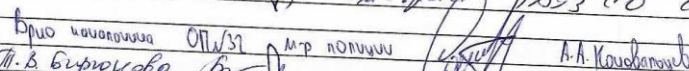 Врио начальника ОП№32 м-р полиции А.А. Коновальцев
Т.В. Бирюкова